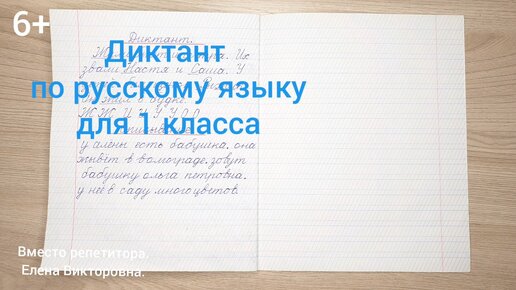 6+
Диктант.
Их
Диктант
звали Настя и Саша. У
по русскому языку
в будке.
для 1 класса
у алены есть бабушка. она
живёт в волгограде. зовут
бабушку ольга петровна.
у неё в саду много цветов.
Вместо репетитора.
Елена Викторовна.